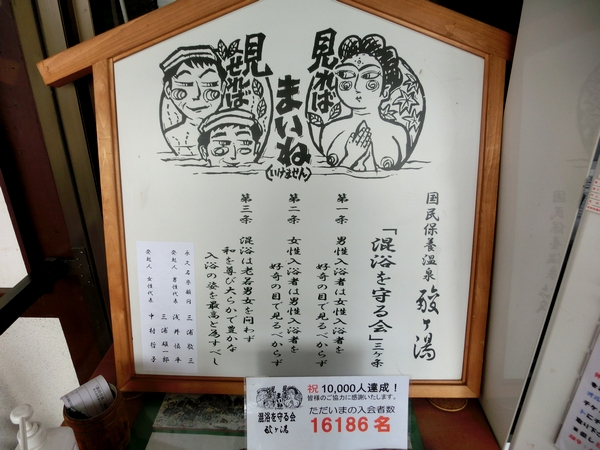 見れば
まいね
(いけません)
見せれば
国民保養温泉 酸ヶ湯
「混浴を守る会」三ヶ条
第一条 男性入浴者は女性入浴者を
好奇の目で見るべからず
第二条 女性入浴者は男性入浴者を
好奇の目で見るべからず
第三条 混浴は老若男女を問わず
和を尊び大らかで豊かな
入浴の姿を最高と為すべし
永久名誉顧問 三浦敬三
発起人 男性代表 浅井伍平
三浦雄一郎
発起人 女性代表 中村行子
祝 10,000人達成!
皆様のご協力に感謝いたします。
ただいまの入会者数
16186 名
混浴を守る会
酸ヶ湯